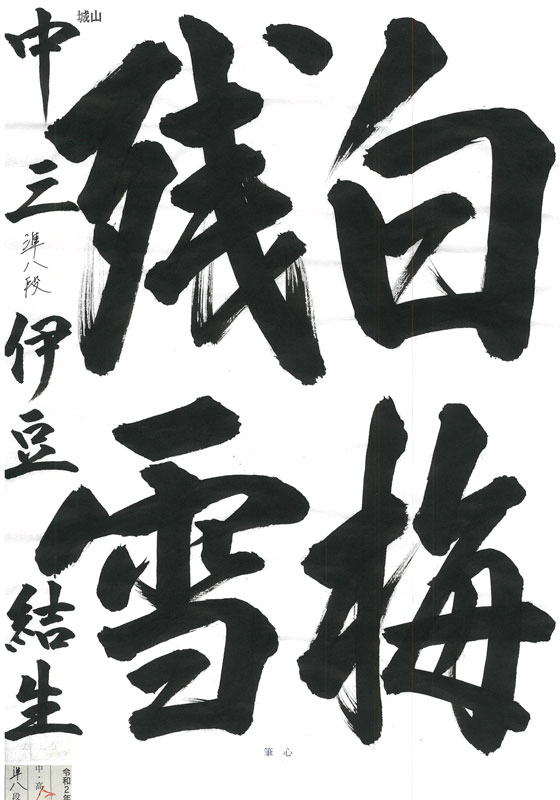 白梅
残雪
城山
中三 準八段 伊豆 結生
心筆
令和2年
中・高
準八段